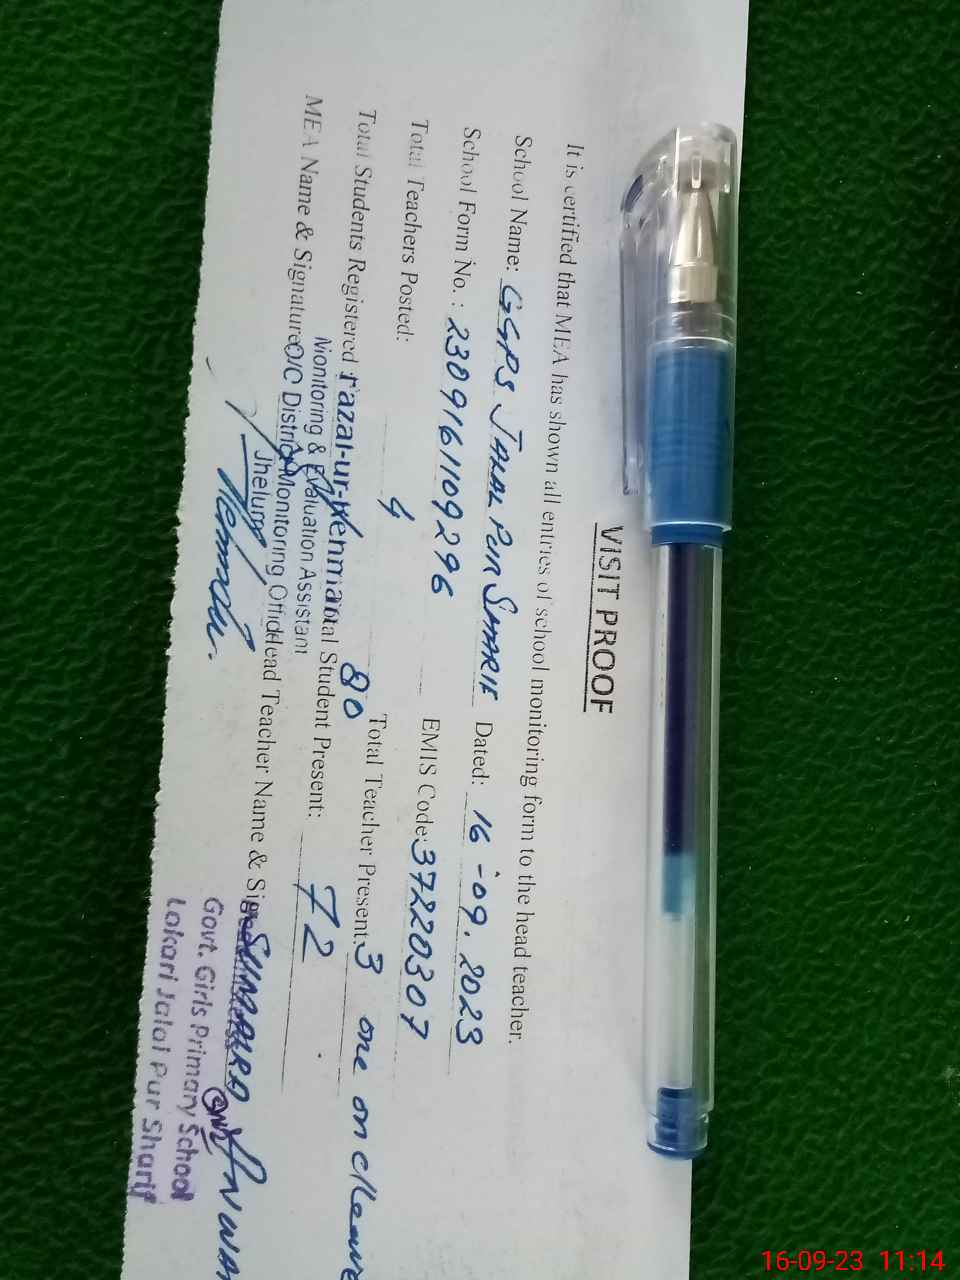 VISIT PROOF
It is certified that MEA has shown all entries of school monitoring form to the head teacher.
School Name: GGPS JALAL PUR SHARIF Dated: 16-09.2023
School Form No.: 2309161109296 EMIS Code: 37220307
Total Teachers Posted: 4 Total Teacher Present: 3 one on cleave
Total Students Registered 80 Total Student Present: 72
MEA Name & Signature Head Teacher Name & Sig
Fazal-ur-Rehman
Monitoring & Evaluation Assistant
O/C District Monitoring Offic
Jhelum
Govt. Girls Primary School
Lokari Jalal Pur Sharif
16-09-23 11:14